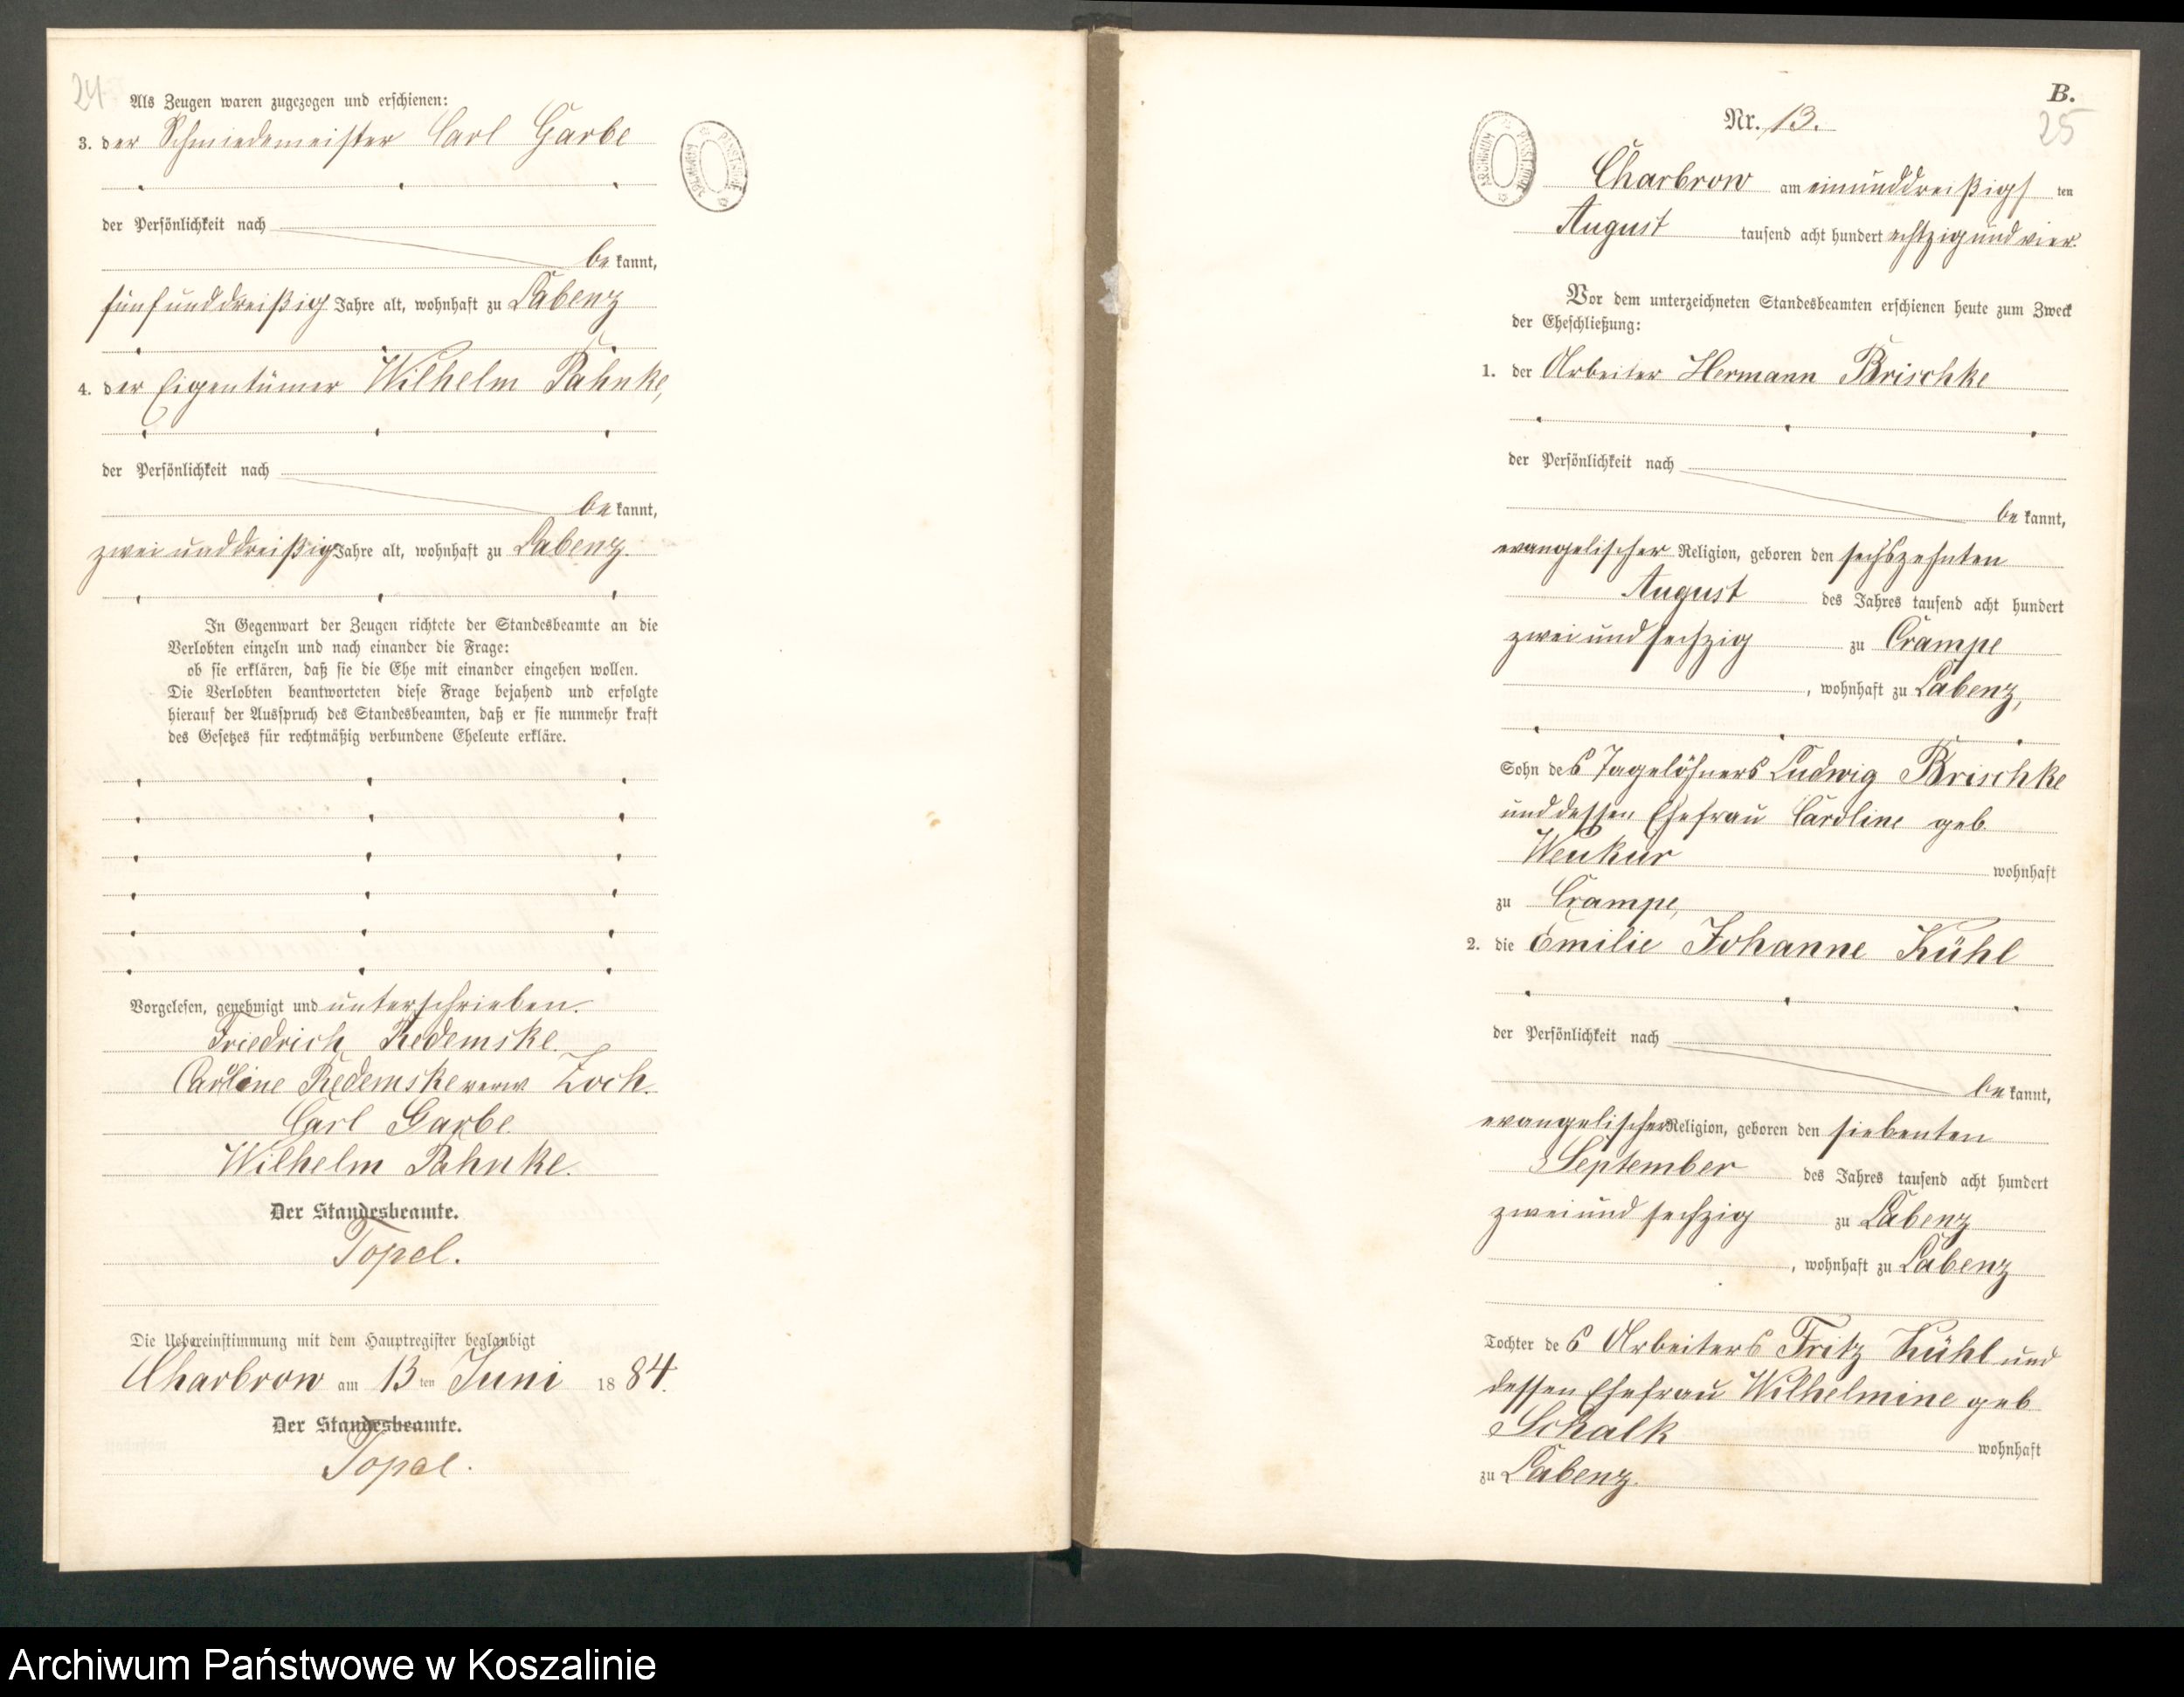 24
Als Zeugen waren zugezogen und erschienen:
3. der Schmiedemeister Carl Garbe
der Persönlichkeit nach
be kannt,
fünfunddreißig Jahre alt, wohnhaft zu Labenz
4. der Eigentümer Wilhelm Pahnke,
der Persönlichkeit nach
be kannt,
zweiunddreißig Jahre alt, wohnhaft zu Labenz.
In Gegenwart der Zeugen richtete der Standesbeamte an die
Verlobten einzeln und nach einander die Frage:
ob sie erklären, daß sie die Ehe mit einander eingehen wollen.
Die Verlobten beantworteten diese Frage bejahend und erfolgte
hierauf der Ausspruch des Standesbeamten, daß er sie nunmehr kraft
des Gesetzes für rechtmäßig verbundene Eheleute erkläre.
Vorgelesen, genehmigt und unterschrieben.
Friedrich Redemske.
Caroline Redemske verw Zoch.
Carl Garbe.
Wilhelm Pahnke.
Der Standesbeamte.
Topel.
Die Uebereinstimmung mit dem Hauptregister beglaubigt
Charbrow am 13 ten Juni 18 84.
Der Standesbeamte.
Topel.
ARCHIWUM PAŃSTWOWE
B.
Nr. 13.
25
ARCHIWUM PAŃSTWOWE
Charbrow am einunddreißigs ten
August tausend acht hundert achtzig und vier.
Vor dem unterzeichneten Standesbeamten erschienen heute zum Zweck
der Eheschließung:
1. der Arbeiter Hermann Brischke
der Persönlichkeit nach
be kannt,
evangelischer Religion, geboren den sechszehnten
August des Jahres tausend acht hundert
zwei und sechzig zu Crampe
, wohnhaft zu Labenz,
Sohn des Tagelöhners Ludwig Brischke
und dessen Ehefrau Caroline geb
Wenkur wohnhaft
zu Crampe,
2. die Emilie Johanne Kühl
der Persönlichkeit nach
be kannt,
evangelischer Religion, geboren den siebenten
September des Jahres tausend acht hundert
zwei und sechzig zu Labenz
, wohnhaft zu Labenz
Tochter des Arbeiters Fritz Kühl und
dessen Ehefrau Wilhelmine geb
Schalk wohnhaft
zu Labenz.
Archiwum Państwowe w Koszalinie